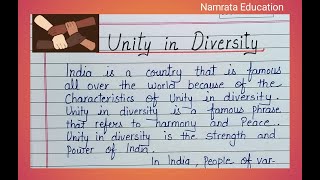 Namrata Education
Unity in Diversity
India is a country that is famous
all over the world because of the
Characteristics of Unity in diversity.
Unity in diversity is a famous phrase
that refers to harmony and Peace.
Unity in diversity is the strength and
Power of India.
In India, People of var-